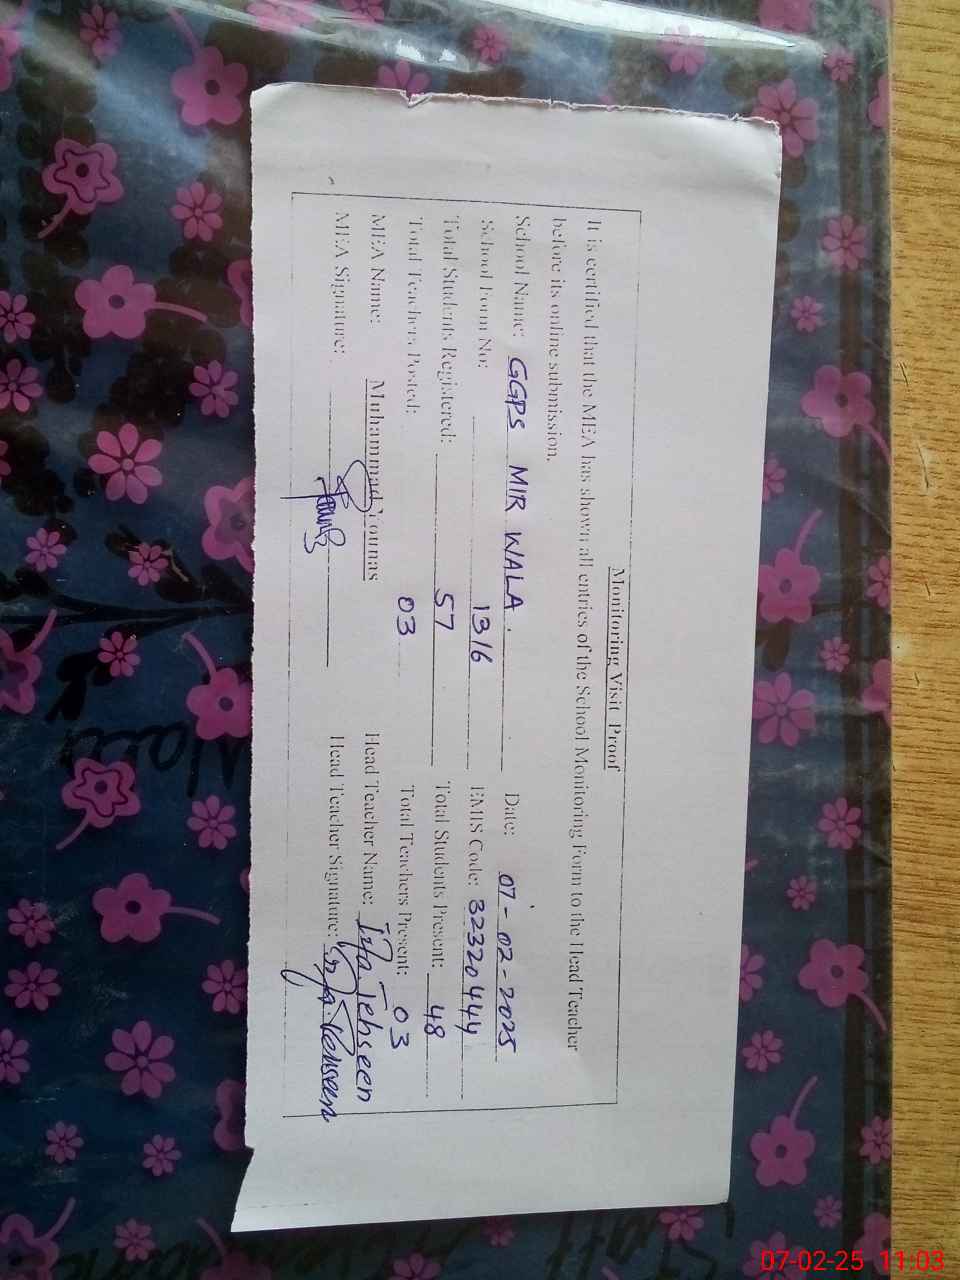 Monitoring Visit Proof
It is certified that the MEA has shown all entries of the School Monitoring Form to the Head Teacher
before its online submission.
School Name: GGPS MIR WALA. Date: 07-02-2025
School Form No: 1316 EMIS Code: 32320444
Total Students Registered: 57 Total Students Present: 48
Total Teachers Posted: 03 Total Teachers Present: 03
MEA Name: Muhammad Younas Head Teacher Name: Tehseen
MEA Signature: Head Teacher Signature: Tehseen
07-02-25 11:03